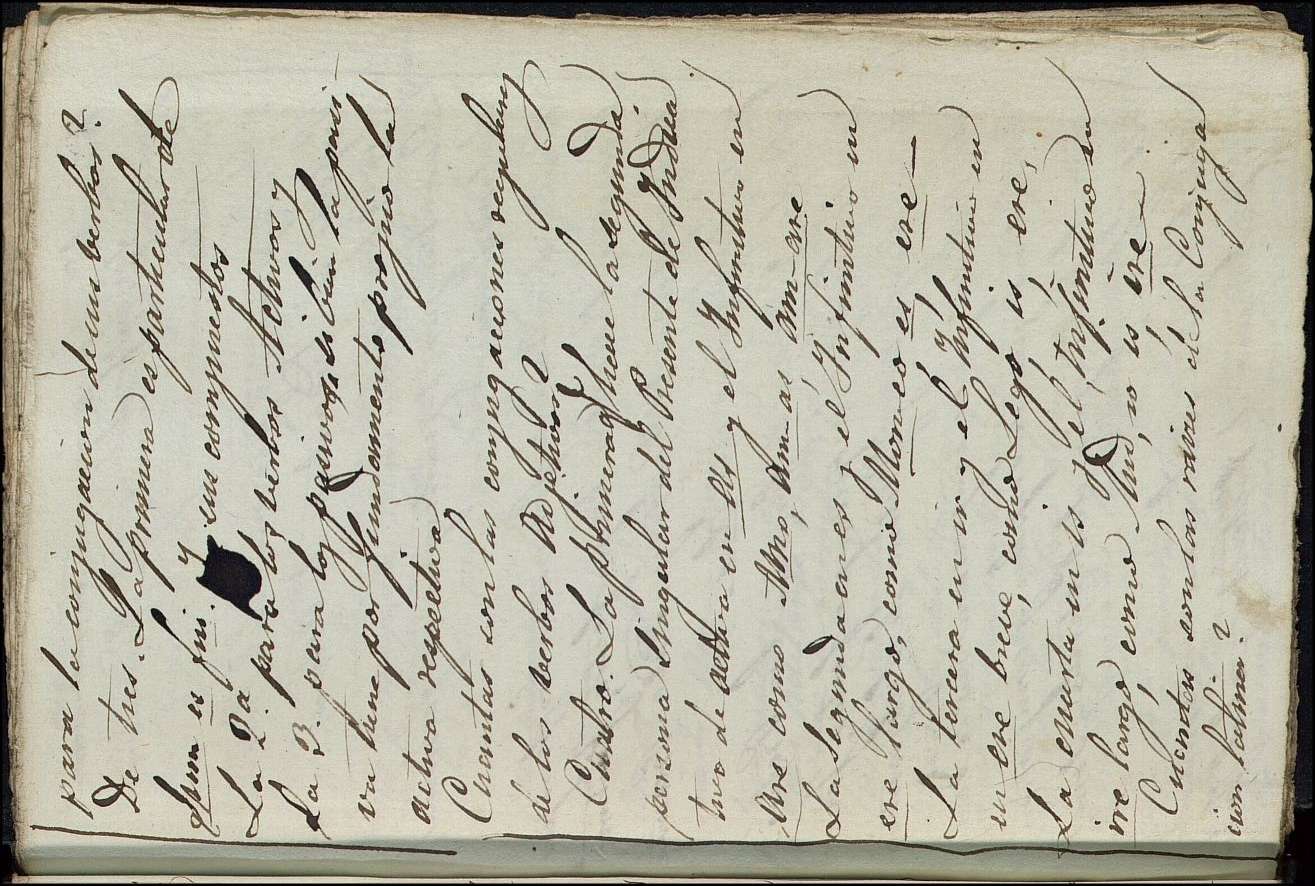 para la conjugacion de sus verbos?
De tres. La primera es particular de
Sum es fui y sus compuestos
La 2ª para los verbos Activos y
La 3. para los pasivos, si bien la pasi-
va tiene por fundamento propio la
activa respetiva
Cuantas son las conjugaciones regulares
de los verbos Adjetivos?
Cuatro. La primera tiene la segunda
persona Singular del Presente de Indica
tivo de activa en as y el Infinitivo en
are como Amo, Am-as, am-are
La Segunda en es y el Infinitivo en
ere largo, como Moneo es ere-
La tercera en is y el Infinitivo en
en ere breve, como Lego is ere,
La cuarta en is y el Infinitivo en
ire largo, como Audio is ire
Cuantas son las raices de la Conjuga
cion latina?